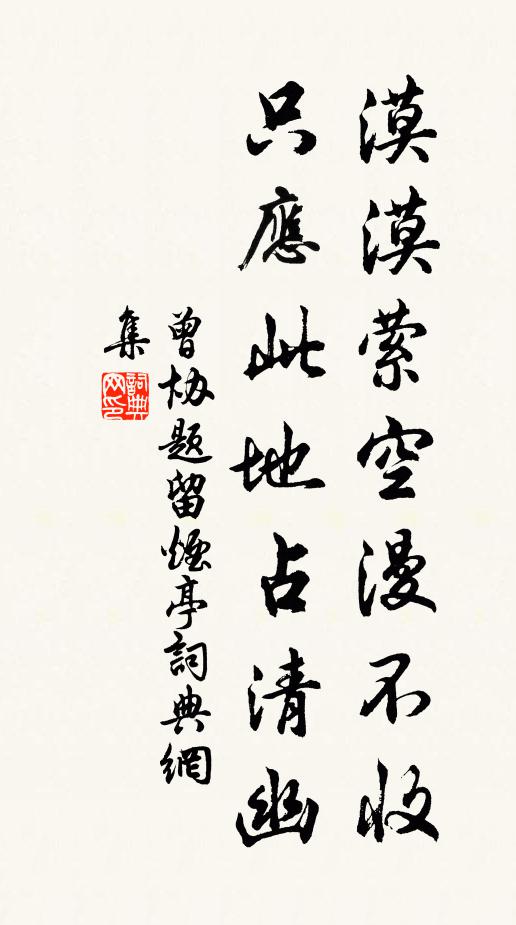 漠漠萦空漫不收
只應此地占清幽
曾協題留煙亭詞典網
集
詞典
网印